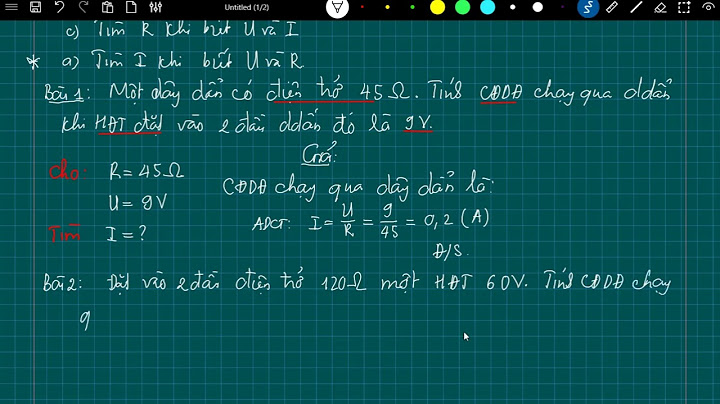 Untitled (1/2)
c) Tìm R khi biết U và I
* a) Tìm I khi biết U và R
Bài 1: Một dây dẫn có điện trở 45Ω. Tính CĐDĐ chạy qua ddẫn
khi HĐT đặt vào 2 đầu ddẫn đó là 9V.
Giải:
Cho: R = 45Ω
U = 9V
Tìm I = ?
CĐDĐ chạy qua dây dẫn là:
ADCT: I = U/R = 9/45 = 0,2 (A)
Đ/S.
Bài 2: Đặt vào 2 đầu điện trở 120Ω một HĐT 60V. Tính CĐDĐ chạy
q